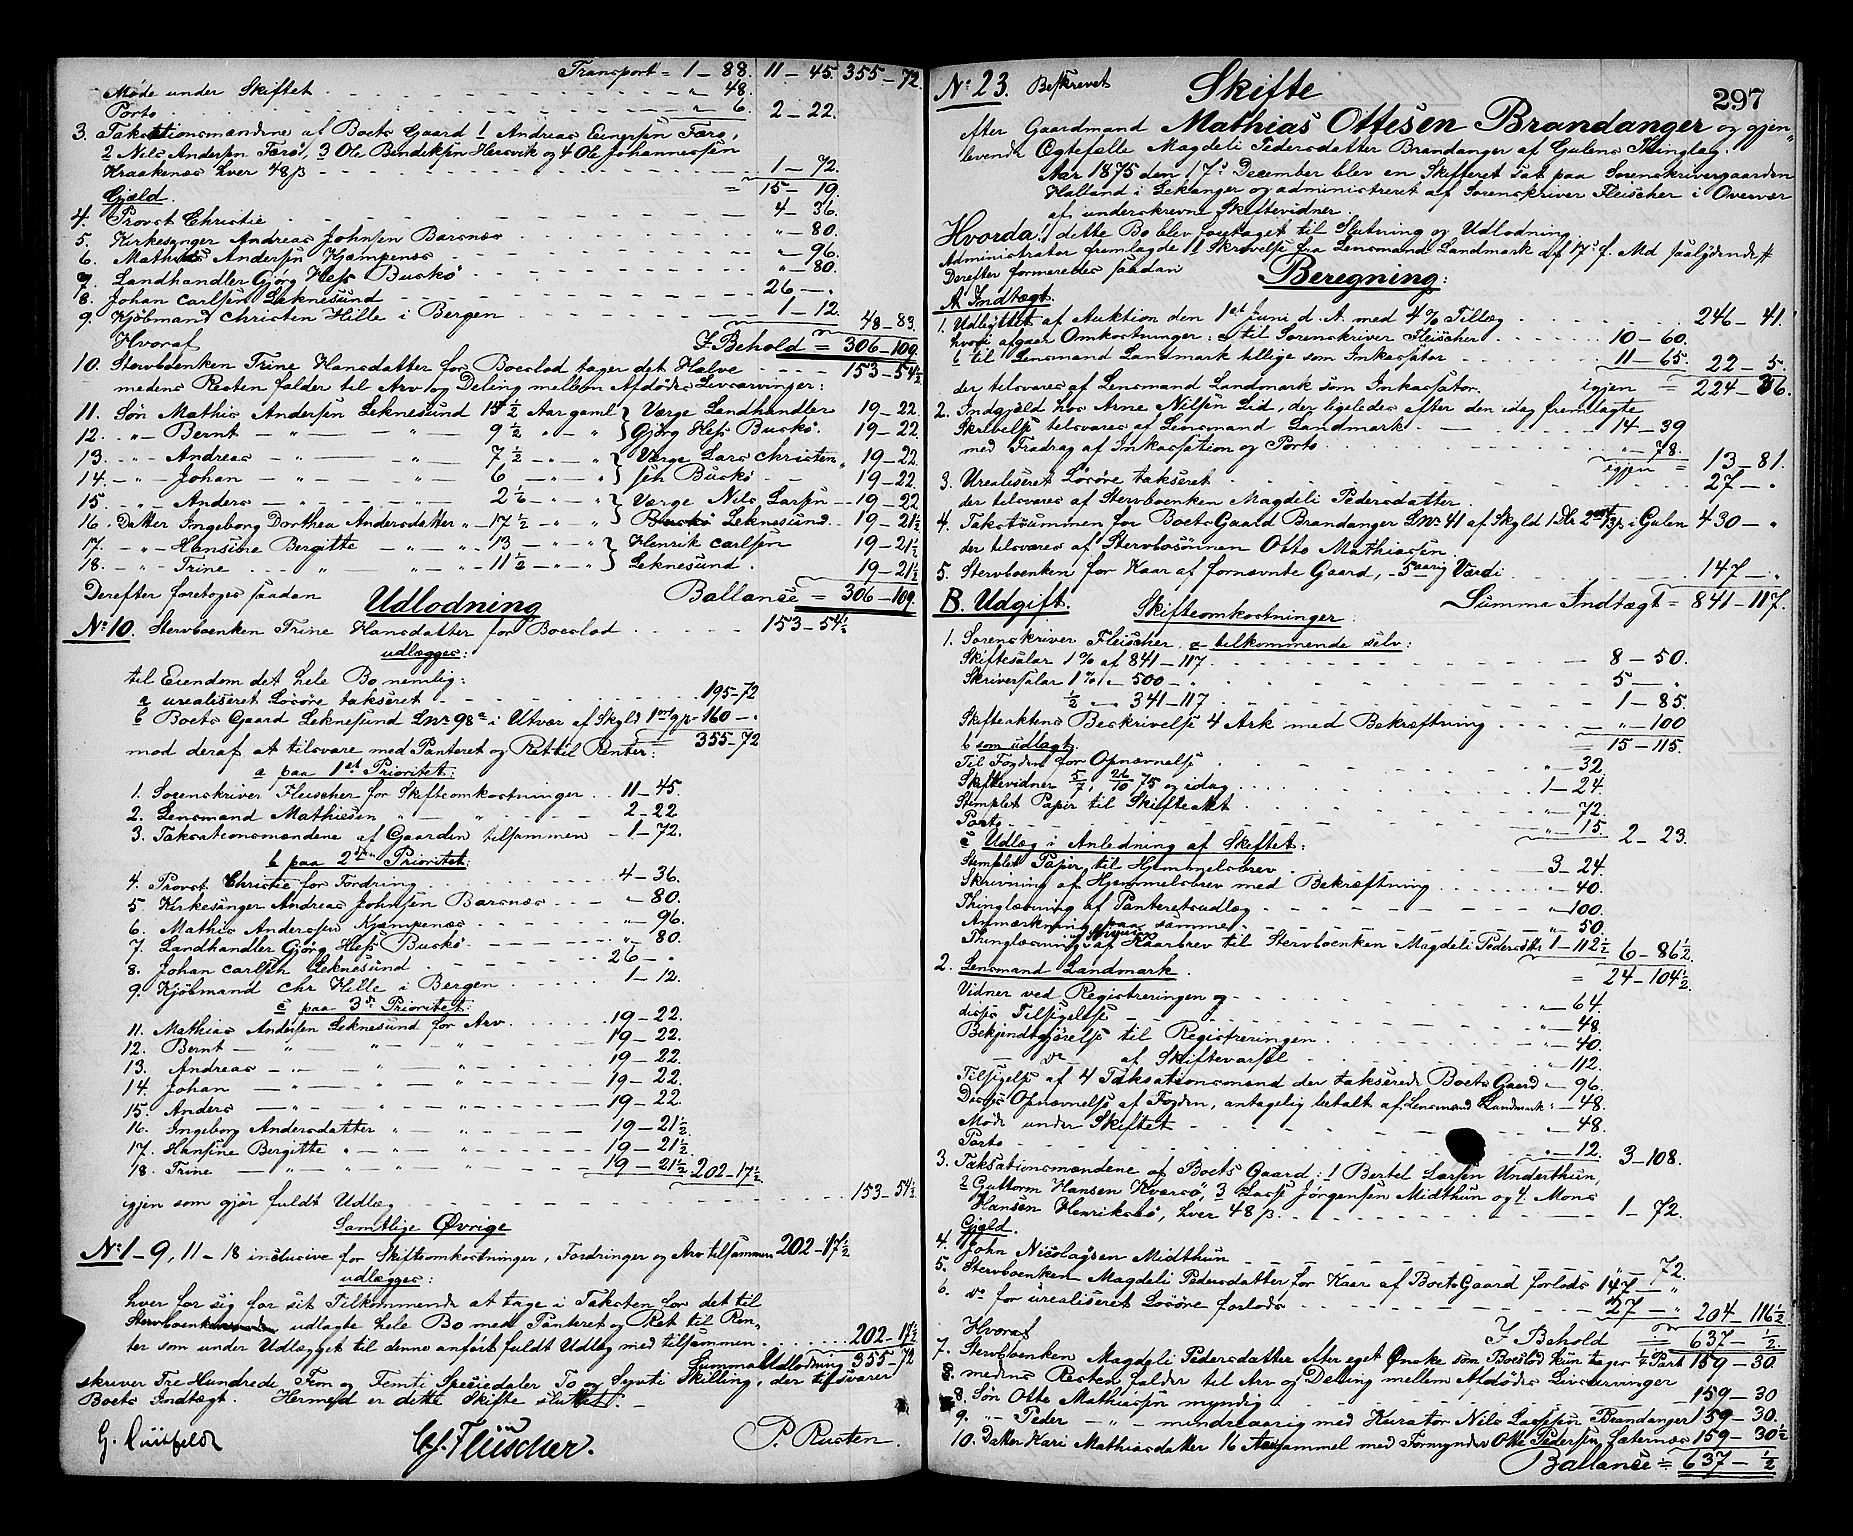 Transport = 1 – 88. 11 – 45. 355 – 72.
Møde under Skiftet . . . „ – 48.
Porto . . . „ – 6. 2 – 22.
3. Takstationsmændene af Boets Gaard 1 Andreas Einersen Færø,
2 Nils Andersen Færø, 3 Ole Bendiksen Hersvik og 4 Ole Johannessen
Kraakenes hver 48 β . . . 1 – 72.
Gjæld. = 15 – 19.
4. Provst Christie . . . 4 – 36.
5. Kirkesanger Andreas Johnsen Barsnæs . . . „ – 80.
6. Mathias Andersen Kjempenæs . . . „ – 96.
7. Landhandler Gjørg Hess Buskø . . . „ – 80.
8. Johan Carlsen Leknesund . . . 26 – „
9. Kjøbmand Christen Hille i Bergen . . . 1 – 12. 48 – 83.
Hvoraf I Behold = 306 – 109.
10. Stervboenken Trine Hansdatter for Boeslod tager det Halve . . . 153 – 54½
medens Resten falder til Arv og Deling mellem Afdødes Livsarvinger:
11. Søn Mathis Andersen Leknesund 18½ Aar gaml } Værge Landhandler 19 – 22.
12. „ Bernt – „ – „ – 9½ „ – „ } Gjørg Hess Buskø. 19 – 22.
13. „ Andreas – „ – „ – 7½ „ – „ } Værge Lars Christen„ 19 – 22.
14. „ Johan – „ – „ – 6 „ – „ } sen Buskø 19 – 22.
15. „ Anders – „ – „ – 2½ „ – „ } Værge Nils Larsen 19 – 22
16. Datter Ingeborg Dorthea Andersdatter „ – 17½ „ – „ } Buskø Leknesund. 19 – 21½
17. „ Hansine Bergitte – „ – „ – 13 „ – „ } Henrik Carlsen 19 – 21½
18. „ Trine . . . „ – „ – „ – 11½ „ – „ } Leknesund. 19 – 21½
Derefter foretoges saadan Ballance = 306 – 109.
Udlodning
No. 10. Stervboenken Trine Hansdatter for Boeslod . . . 153 – 54½
udlægges:
til Eiendom det hele Bo nemlig:
a urealiseret Løsøre takseret . . . 195 – 72
b Boets Gaard Leknesund LNr. 98a i Utvær af Skyld 1 ort 9 β – 160 – „
mod deraf at tilsvare med Panteret og Ret til Renter: = 355 – 72
a paa 1ste Prioritet:
1. Sorenskriver Fleischer for Skifteomkostninger . . 11 – 45.
2. Lensmand Mathiesen „ – „ . . . 2 – 22
3. Taksationsmændene af Gaarden tilsammen – 1 – 72.
b paa 2den Prioritet:
4. Provst Christie for Fordring . . . 4 – 36.
5. Kirkesanger Andreas Johnsen Barsnæs . . . „ – 80.
6. Mathis Andersen Kjempenæs . . . „ – 96.
7. Landhandler Gjørg Hess Buskø . . . „ – 80.
8. Johan Carlsen Leknesund . . . 26 – „
9. Kjøbmand Chr Hille i Bergen . . . 1 – 12.
c paa 3die Prioritet:
11. Mathias Andersen Leknesund for Arv . . . 19 – 22.
12. Bernt – „ – „ – „ . . . 19 – 22.
13. Andreas – „ – „ – „ . . . 19 – 22
14. Johan – „ – „ – „ . . . 19 – 22.
15. Anders – „ – „ – „ . . . 19 – 22.
16. Ingeborg Andersdatter „ – „ . . . 19 – 21½
17. Hansine Bergitte „ – „ – „ . . . 19 – 21½
18. Trine – „ – „ – „ . . . 19 – 21½ 202 – 17½
igjen som gjør fuldt Udlæg . . . 153 – 54½
Samtlige Øvrige
No. 1 – 9, 11 – 18 inclusive for Skifteomkostninger, Fordringer og Arv tilsammen 202 – 17½
udlægges:
hver for sig for sit Tilkommende at tage i Taksten for det til
Stervboenken udlagte hele Bo med Panteret og Ret til Ren„
ter som under Udlægget til denne anført fuldt Udlæg med tilsammen . . . 202 – 17½
Summa Udlodning 355 – 72
skriver Tre Hundrede, Fem og Femti Speciedaler To og Syvti Skilling, der tilsvarer
Boets Indtægt. Hermed er dette Skifte sluttet. –
G. Quitfeldt Fleischer. P. Rusten.
297
No. 23. Beskrevet Skifte
efter Gaardmand Mathias Ottesen Brandanger og gjen„
levende Ægtefælle Magdeli Pedersdatter Brandanger af Gulens Thinglag.
Aar 1875 den 17de December blev en Skifteret sat paa Sorenskrivergaarden
Halland i Leikanger og administreret af Sorenskriver Fleischer i Overvær
af underskrevne Skiftevidner.
Hvorda! i dette Bo blev foretaget til Slutning og Udlodning.
Administrator fremlagde 1) Skrivelse fra Lensmand Landmark af 17de f. Md saalydende #
Derefter formeredes saadan Beregning:
A. Indtægt.
1. Udbyttet af Auktion den 1st Juni d. A. med 4% Tillæg . . . 246 – 41.
hvori afgaar Omkostninger: a til Sorenskriver Fleischer . . . 10 – 60.
b til Lensmand Landmark tillige som Inkassator . . . 11 – 65. 22 – 5.
der tilsvares af Lensmand Landmark som Inkassator. igjen = 224 – 36.
2. Indgjæld hos Arne Nilsen Lid, der ligeledes efter den idag fremlagte
Skrivelse tilsvares af Lensmand Landmark . . . 14 – 39
med Fradrag af Inkassation og Porto . . . „ – 78.
igjen = 13 – 81.
3. Urealiseret Løsøre takseret . . . 27 – „
der tilsvares af Stervboenken Magdeli Pedersdatter.
4. Takstsummen for Boets Gaard Brandanger LNr. 41 af Skyld 1 Dlr 2 ort 13 β i Gulen 430 – „
der tilsvares af Stervbosønnen Otto Mathiassen.
5. Stervboenken for Kaar af fornævnte Gaard, – 5aarig Værdi . . . 147 – „
B. Udgift. Summa Indtægt = 841 – 117.
Skifteomkostninger:
1. Sorenskriver Fleischer, a tilkommende selv:
Skiftesalar 1% af 841 – 117 . . . 8 – 50.
Skriversalar 1% „ – 500 – „ . . . 5 – „
½ „ 341 – 117 . . . 1 – 85.
Skifteaktens Beskrivelse 4 Ark med Bekræftning . . . „ – 100
b som udlagt. = 15 – 115.
Til Fogden for Opnævnelse . . . „ – 32.
Skiftevidner 5/7, 26/10 75 og idag . . . 1 – 24.
Stemplet Papir til Skifteakt . . . „ – 72.
Porto . . . „ – 15. 2 – 23.
c Udlæg i Anledning af Skiftet:
Stemplet Papir til Hjemmelsbrev . . . 3 – 24.
Skrivning af Hjemmelsbrev med Bekræftning . . . „ – 40.
Thinglæsning af Panteretsudlæg . . . „ – 100.
Anmærkning paa samme . . . „ – 50.
Thinglæsning af Kaarbrev til Stervboenken Magdeli Pedersdtr 1 – 112½ 6 – 86½
2. Lensmand Landmark. = 24 – 104½
Vidner ved Registreringen og . . . „ – 64.
disses Tilsigelse . . . „ – 48.
Bekjendtgjørelse til Registreringen . . . „ – 40.
– do af Skiftevarsel . . . „ – 112.
Tilsigelse af 4 Taksationsmænd der takserede Boets Gaard „ – 96.
Disses Opnævnelse af Fogden, antagelig betalt af Lensmand Landmark „ – 48.
Møde under Skiftet . . . „ – 48.
Porto . . . „ – 12. 3 – 108.
3. Taksationsmændene af Boets Gaard: 1 Bertel Larsen Underthun,
2 Guttorm Hansen Kversø, 3 Lasse Jørgensen Midthun og 4. Mons
Hansen Henriksbø, hver 48 β . . . 1 – 72.
Gjæld.
4. John Nicolaysen Midthun . . . „ – 72.
5. Stervboenken Magdeli Pedersdatter for Kaar af Boets Gaard forlods 147 – „
6. do for urealiseret Løsøre forlods . . . 27 – „ 204 – 116½
Hvoraf I Behold = 637 – ½
7. Stervboenken Magdeli Pedersdatter efter eget Ønske som Boeslod kun tager ¼ Part 159 – 30.
medens Resten falder til Arv og Deling mellem Afdødes Livsarvinger
8. Søn Otto Mathiassen myndig . . . 159 – 30
9. „ Peder – „ – mindreaarig med Kurator Nils Lassesen Brandanger 159 – 30.
10. Datter Kari Mathiasdatter 16 Aar gammel med Formynder Otte Pedersen Sæternæs 159 – 30½
Ballance = 637 – ½